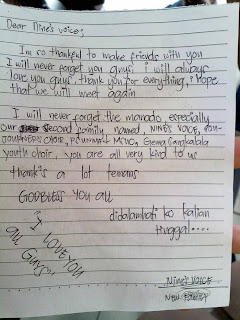 Dear Nine's voice,
I'm so thankful to make friends with you
I will never forget you guys! i will always
love you guys. thank you for everything, i hope
that we will meet again
I will never forget the manado, especially
our second family named, NINE'S VOICE,
CHOIR, MCHC, Gema Sangkakala
youth choir, you are all very kind to us
thank's a lot temans
GODBLESS YOU all
didalamhati ko kalian
Hingga....
"I LOVE YOU
all GUYS"
NINE'S VOICE
NEW FAMILY